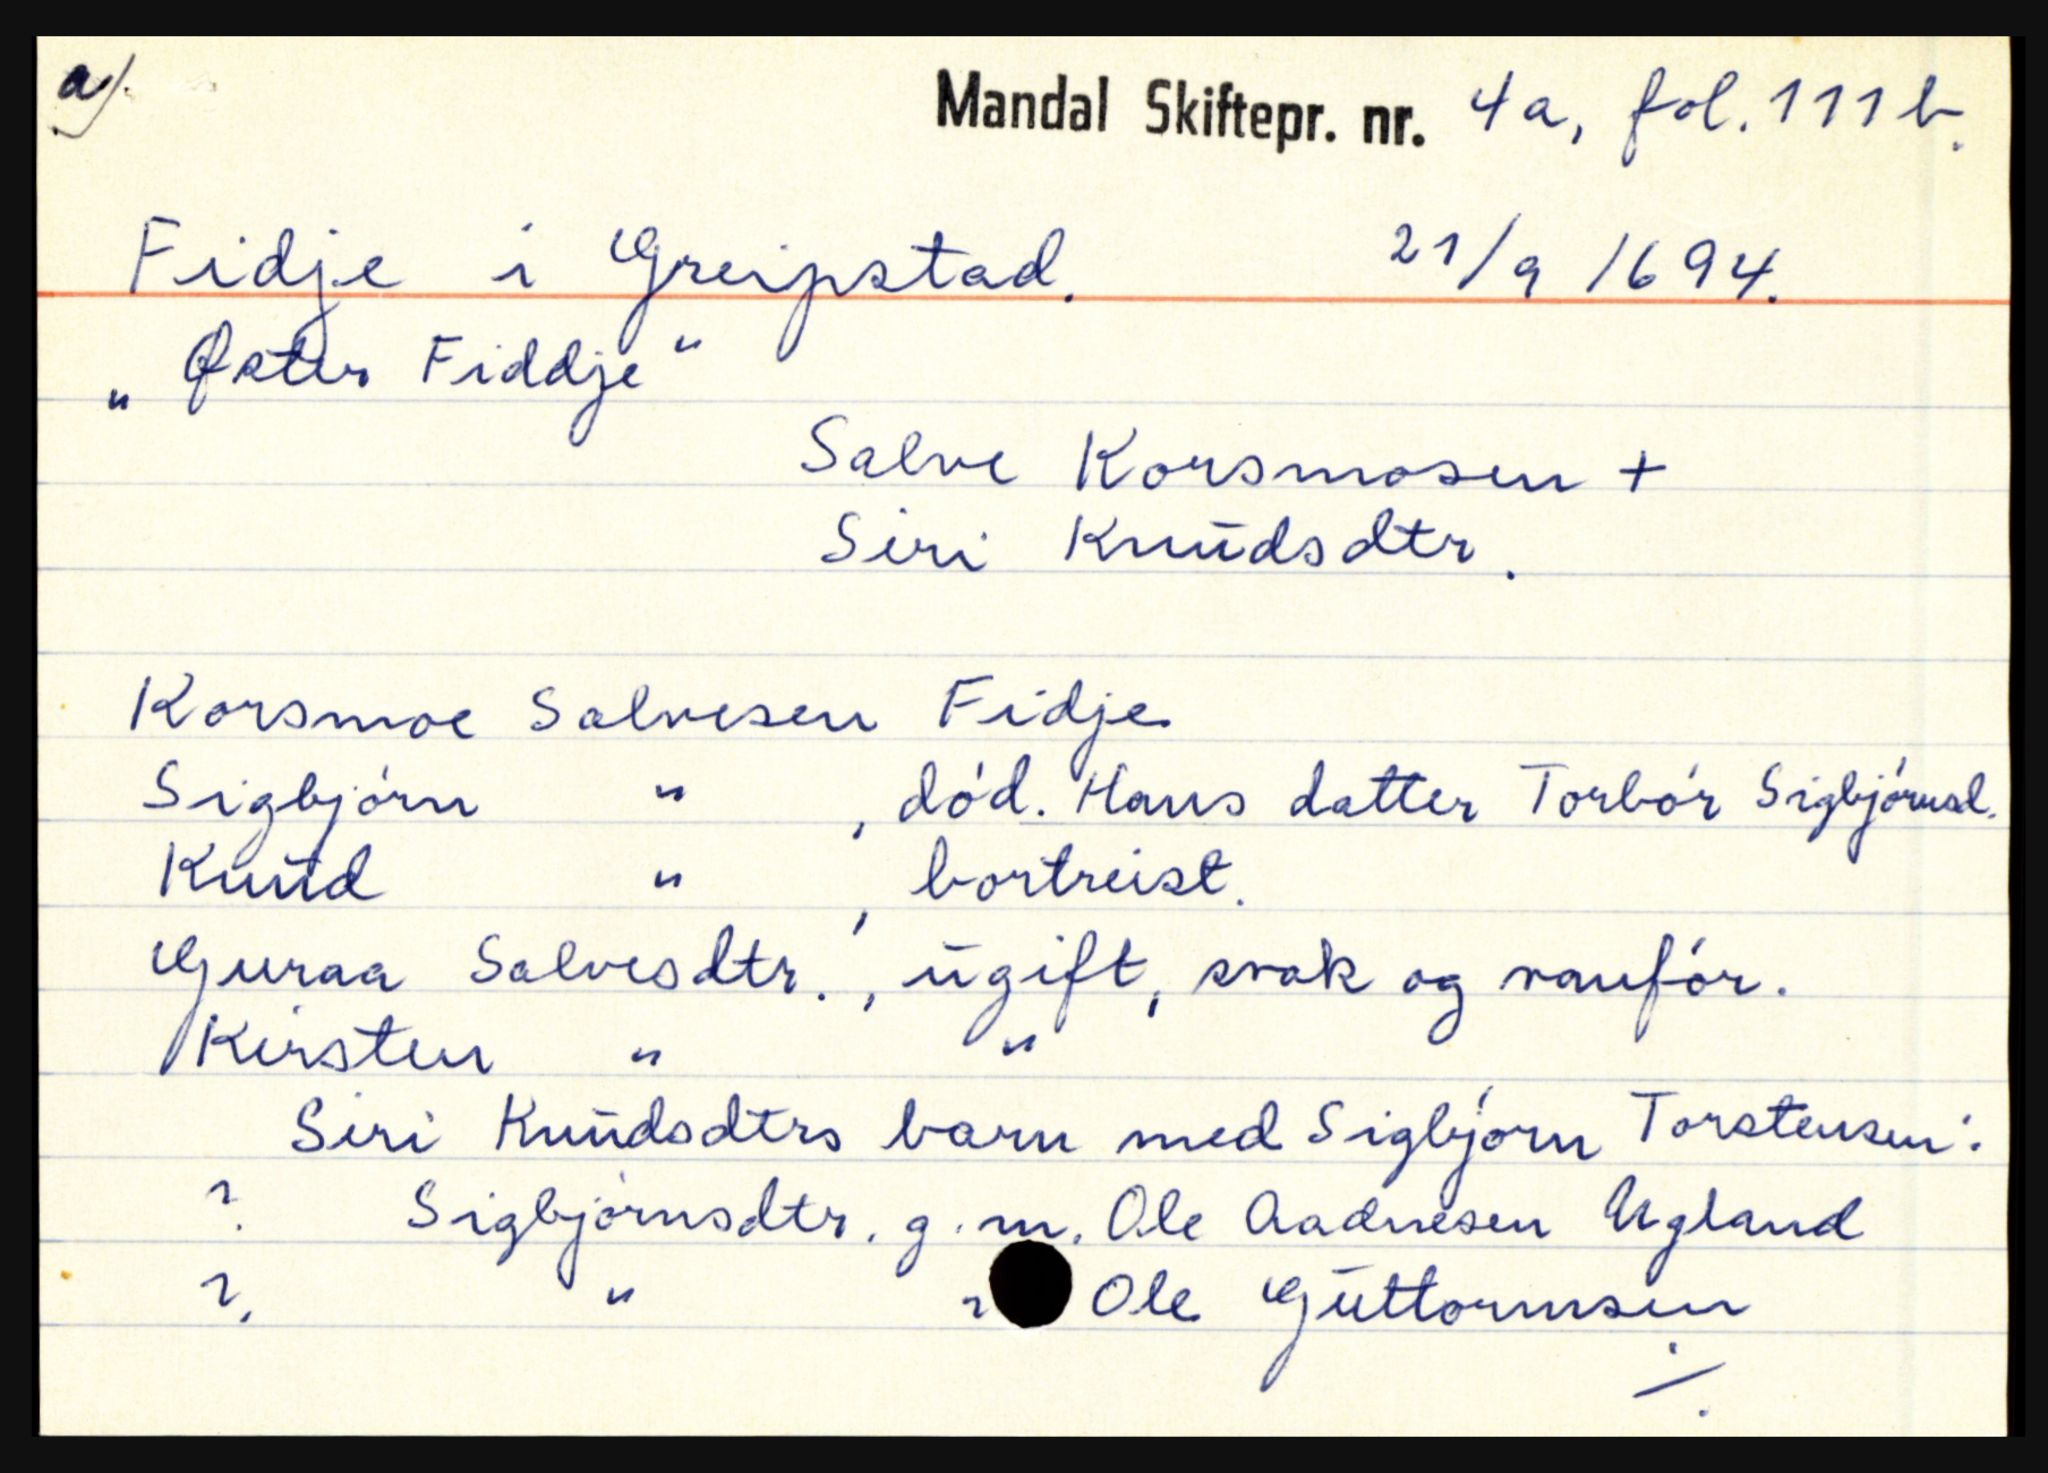 a/.
Mandal Skiftepr. nr. 4a, fol. 111 b.
Fidje i Greipstad. 21/9 1694.
„Øster Fiddje"
Salve Korsmosen +
Siri Knudsdtr.
Korsmoe Salvesen Fidje
Sigbjórn " , dód. Hans datter Torbór Sigbjórnsd.
Knud " , bortreist.
Guraa Salvesdtr., ugift, svak og vanfór.
Kirsten " "
Siri Knudsdtrs barn med Sigbjórn Torstensen:
? Sigbjórnsdtr. g. m. Ole Aadnesen Ugland
?. " " Ole Guttormsen
./.